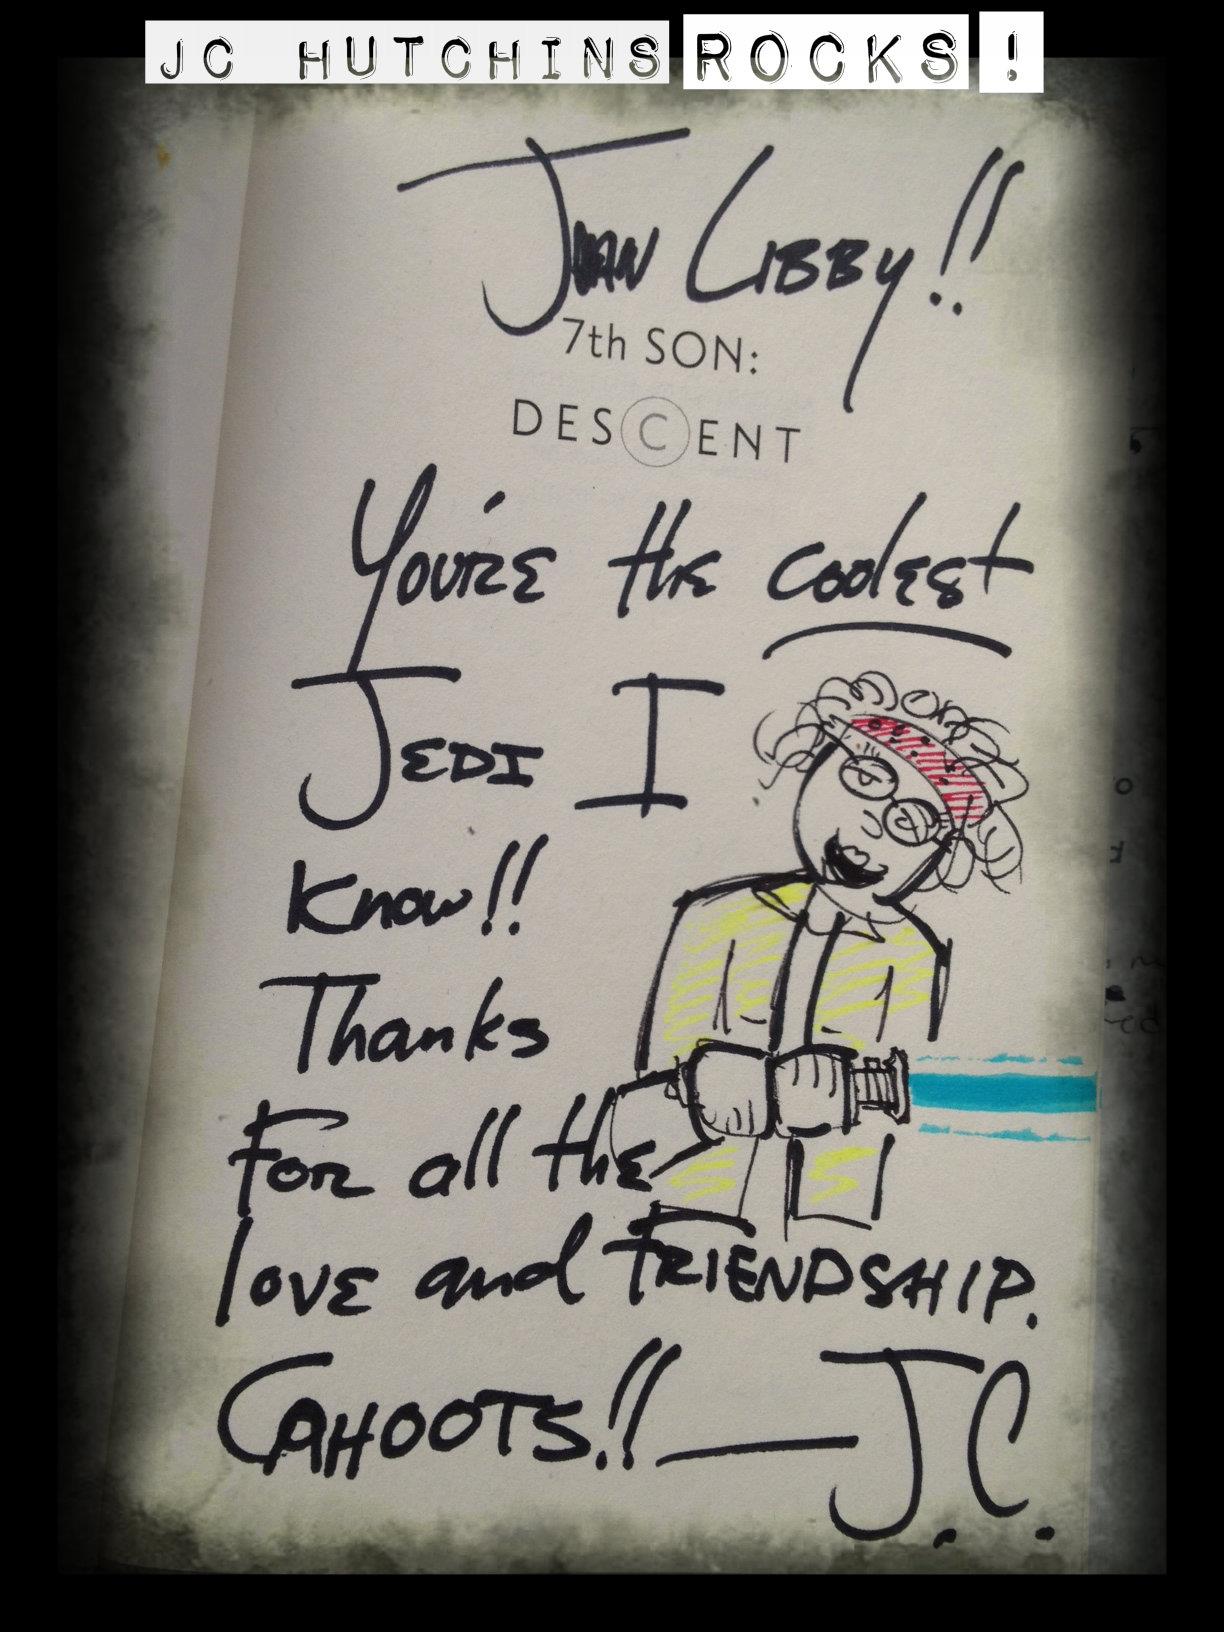 JC HUTCHINS ROCKS!
JUAN LIBBY!!
7th SON:
DESCENT
YOU'RE the coolest
JEDI I
Know!!
Thanks
FOR all the
love and FRIENDSHIP.
CAHOOTS!! — J.C.